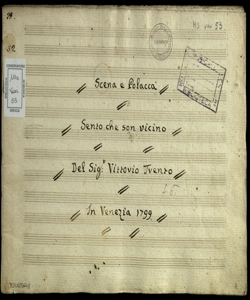 MS VAR 53
52
Scena e Polacca
Sento che son vicino
Del Sig.r Vittorio Trento
In Venezia 1799